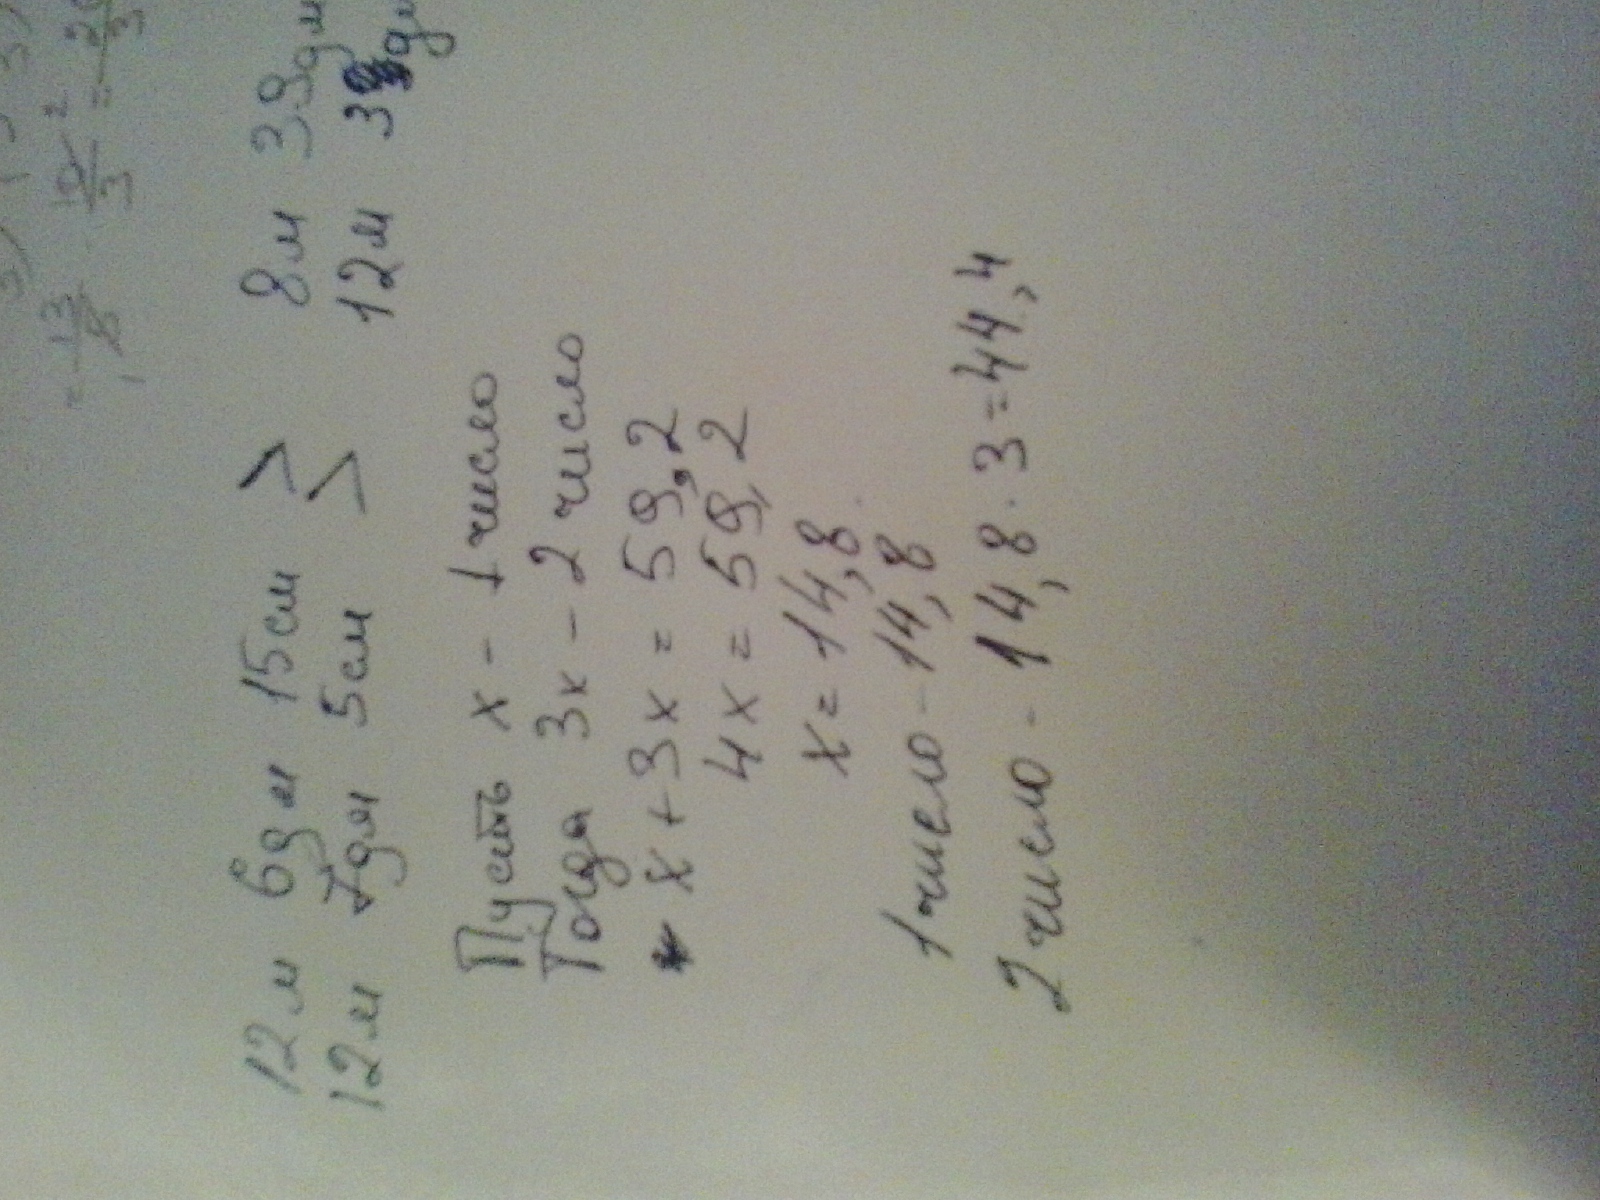 = 13/8 · 10/3 2 =
12м 6дм 15см > 8м 39дм
12м 7дм 5см > 12м 39дм
Пусть x - 1 число
Тогда 3x - 2 число
x + 3x = 59,2
4x = 59,2
x = 14,8
1 число - 14,8
2 число - 14,8 · 3 = 44,4